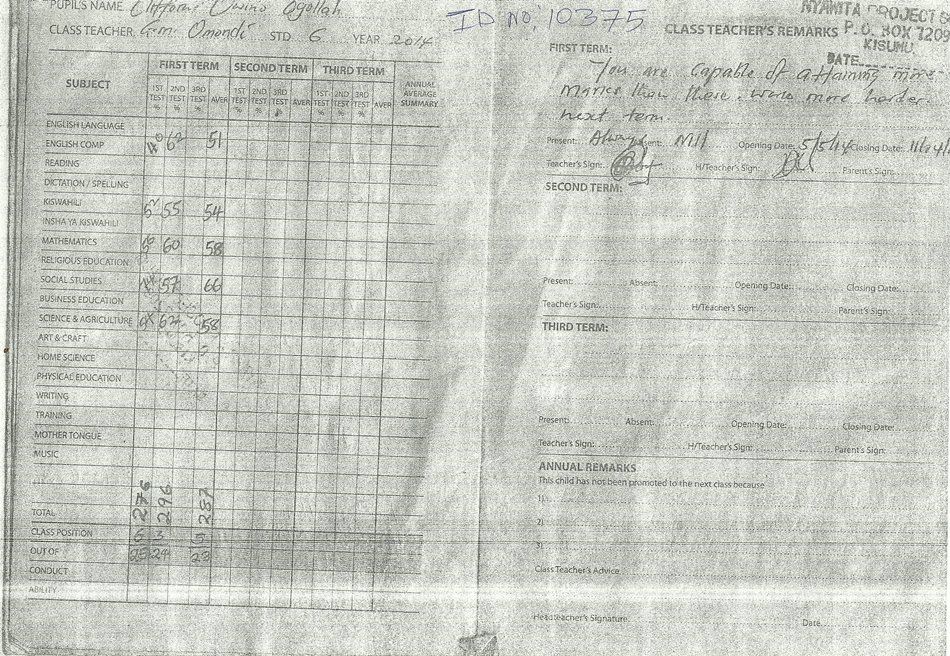 PUPIL'S NAME Owino Ogollah
CLASS TEACHER G.M. Omondi STD. 6 YEAR 2014
SUBJECT FIRST TERM SECOND TERM THIRD TERM ANNUAL AVERAGE SUMMARY
1ST TEST % 2ND TEST % 3RD TEST % AVER 1ST TEST % 2ND TEST % 3RD TEST % AVER 1ST TEST % 2ND TEST % 3RD TEST % AVER
ENGLISH LANGUAGE
ENGLISH COMP 62 51
READING
DICTATION / SPELLING
KISWAHILI 55 54
INSHA YA KISWAHILI
MATHEMATICS 60 58
RELIGIOUS EDUCATION
SOCIAL STUDIES 57 66
BUSINESS EDUCATION
SCIENCE & AGRICULTURE 62 58
ART & CRAFT
HOME SCIENCE
PHYSICAL EDUCATION
WRITING
TRAINING
MOTHER TONGUE
MUSIC
TOTAL 276 296 287
CLASS POSITION 6 3 5
OUT OF 25 24 23
CONDUCT
ABILITY
ID NO: 10375
NYAMITA PROJECT S
P.O. BOX 7209
KISUMU
DATE
CLASS TEACHER'S REMARKS
FIRST TERM:
You are capable of attaining more
marks than these. work more harder
next term.
Present: Always Absent: Nill Opening Date: 5/5/14 Closing Date:
Teacher's Sign: H/Teacher's Sign: Parent's Sign:
SECOND TERM:
Present: Absent: Opening Date: Closing Date:
Teacher's Sign: H/Teacher's Sign: Parent's Sign:
THIRD TERM:
Present: Absent: Opening Date: Closing Date:
Teacher's Sign: H/Teacher's Sign: Parent's Sign:
ANNUAL REMARKS
This child has not been promoted to the next class because
1)
2)
3)
Class Teacher's Advice
Headteacher's Signature Date